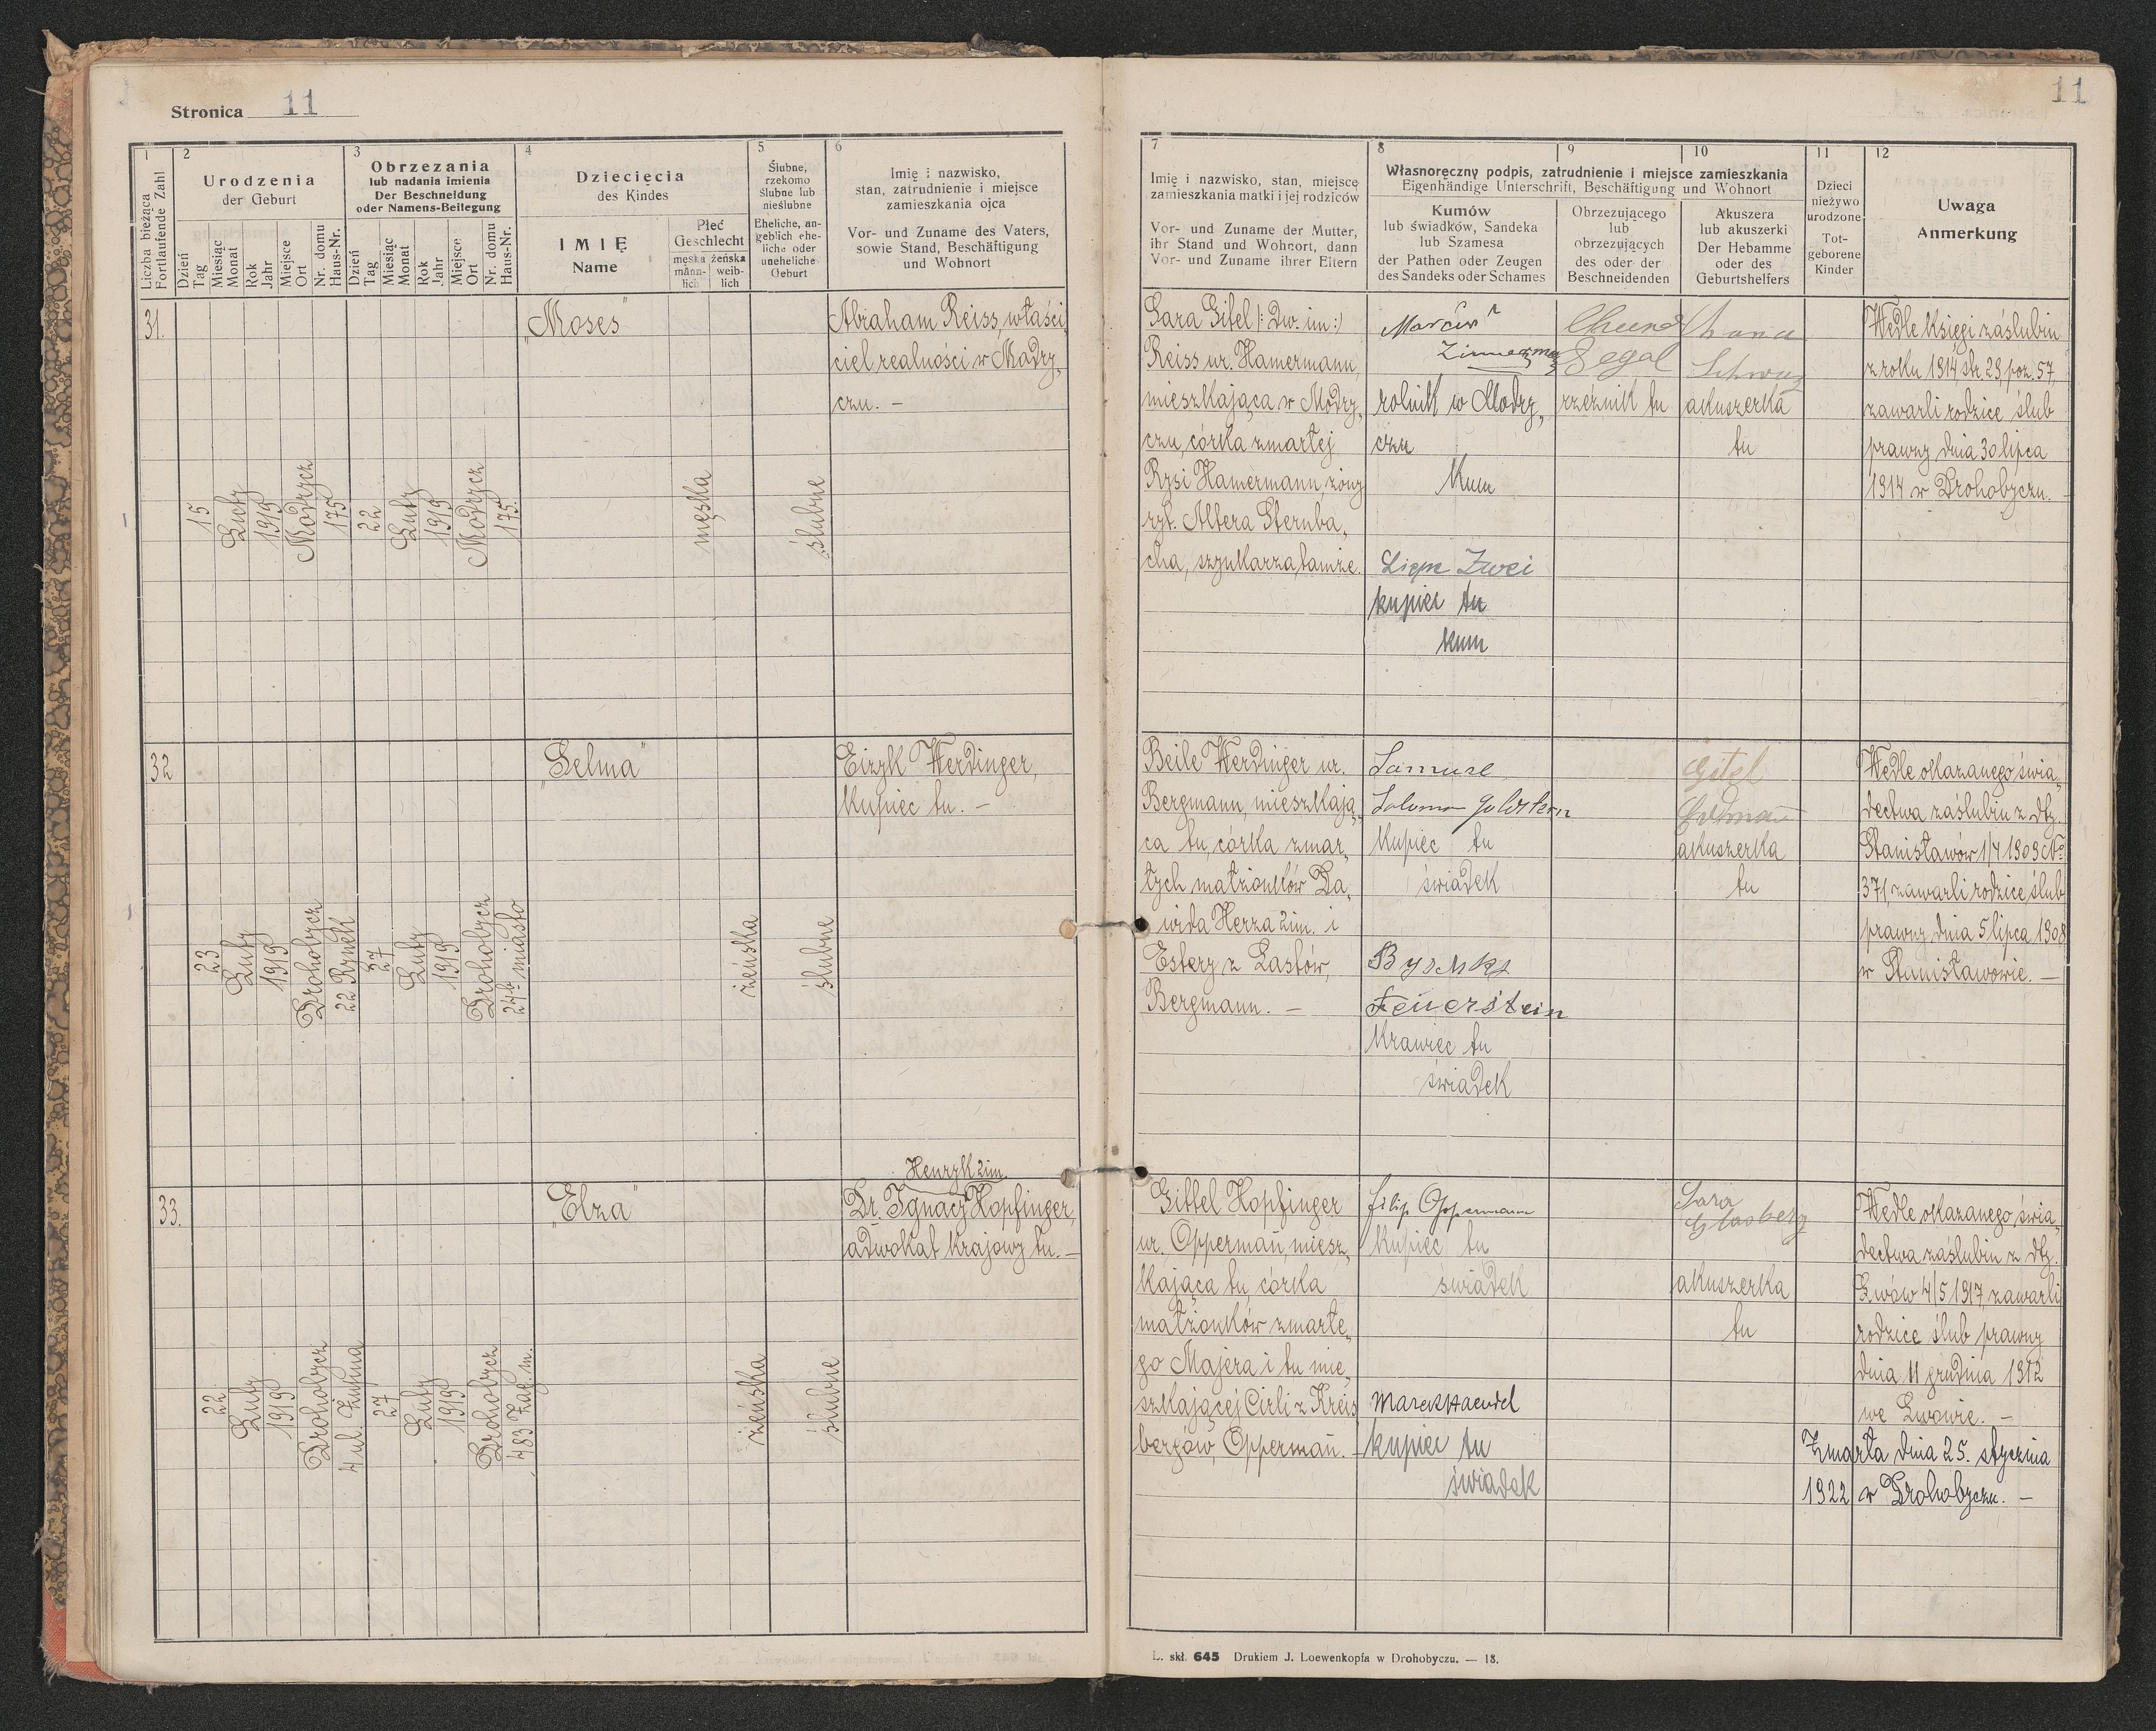 Stronica 11
11
1
Liczba bieżąca
Fortlaufende Zahl
2
Urodzenia
der Geburt
Dzień
Tag
Miesiąc
Monat
Rok
Jahr
Miejsce
Ort
Nr. domu
Haus-Nr.
3
Obrzezania
lub nadania imienia
Der Beschneidung
oder Namens-Beilegung
Dzień
Tag
Miesiąc
Monat
Rok
Jahr
Miejsce
Ort
Nr. domu
Haus-Nr.
4
Dziecięcia
des Kindes
IMIĘ
Name
Płeć
Geschlecht
męska
männ-
lich
żeńska
weib-
lich
5
Ślubne,
rzekomo
ślubne lub
nieślubne
Eheliche, an-
geblich ehe-
liche oder
uneheliche
Geburt
6
Imię i nazwisko,
stan, zatrudnienie i miejsce
zamieszkania ojca
Vor- und Zuname des Vaters,
sowie Stand, Beschäftigung
und Wohnort
7
Imię i nazwisko, stan, miejscę
zamieszkania matki i jej rodziców
Vor- und Zuname der Mutter,
ihr Stand und Wohnort, dann
Vor- und Zuname ihrer Eltern
8
9
10
Własnoręczny podpis, zatrudnienie i miejsce zamieszkania
Eigenhändige Unterschrift, Beschäftigung und Wohnort
Kumów
lub świadków, Sandeka
lub Szamesa
der Pathen oder Zeugen
des Sandeks oder Schames
Obrzezującego
lub
obrzezujących
des oder der
Beschneidenden
Akuszera
lub akuszerki
Der Hebamme
oder des
Geburtshelfers
11
Dzieci
nieżywo
urodzone
Tot-
geborene
Kinder
12
Uwaga
Anmerkung
31.
15
Luty
1919
Modrycz
175
22
Luty
1919
Modrycz
175.
"Moses"
męska
ślubne
Abraham Reiss, właści„
ciel realności w Modry„
czu. —
Sara Gitel /: Dw. im :/
Reiss ur. Hamermann,
mieszkająca w Modry„
czu, córka zmarłej
Rysi Hamermann, żony
ryt. Altera Sternba„
cha, szynkarza tamże.
Marcin
rolnik w Modry„
czu
Kum
Zwei
kupiec tu
kum
Segal
rzeźnik tu
akuszerka
tu
Wedle księgi zaślubin
z roku 1914, str. 29, poz. 57,
zawarli rodzice ślub
prawny dnia 30 lipca
1914 w Drohobyczu. —
32
23
Luty
1919
Drohobycz
22 Rynek
27
Luty
1919
Drohobycz
miasto
„Selma"
żeńska
ślubne
Eizyk Werdinger,
Kupiec tu. —
Beile Werdinger ur.
Bergmann, mieszkają„
ca tu, córka zmar„
łych małżonków Da„
wida Herza 2im. i
Estery z Lastów,
Bergmann. —
Samuel
Salomon Goldstern
Kupiec tu
świadek
Feuerstein
Krawiec tu
świadek
Gitel
akuszerka
tu
Wedle okazanego świa„
dectwa zaślubin z dtg.
Stanisławów 1/4 1909 No
371, zawarli rodzice ślub
prawny dnia 5 lipca 1908
w Stanisławowie. —
33.
22
Luty
1919
Drohobycz
4 ul. Żupna
27
Luty
1919
Drohobycz
483 Zag. m.
„Elza"
żeńska
ślubne
Henryk 2im.
Dr. Ignacy Hopfinger,
adwokat krajowy tu. —
Gittel Hopfinger
ur. Opperman̄, miesz„
kająca tu, córka
małżonków zmarłe„
go Majera i tu mie„
szkającej Cirli z Kreis
bergów, Opperman̄. —
Filip Oppermann
Kupiec tu
świadek
Marek Haendel
kupiec tu
świadek
Sara
Glasberg
akuszerka
tu
Wedle okazanego świa„
dectwa zaślubin z dtg.
Lwów 4/5 1917, zawarli
rodzice ślub prawny
dnia 11 grudnia 1912
we Lwowie. —
Zmarła dnia 25. stycznia
1922 w Drohobyczu. —
L. skł. 645 Drukiem J. Loewenkopfa w Drohobyczu. — 18.